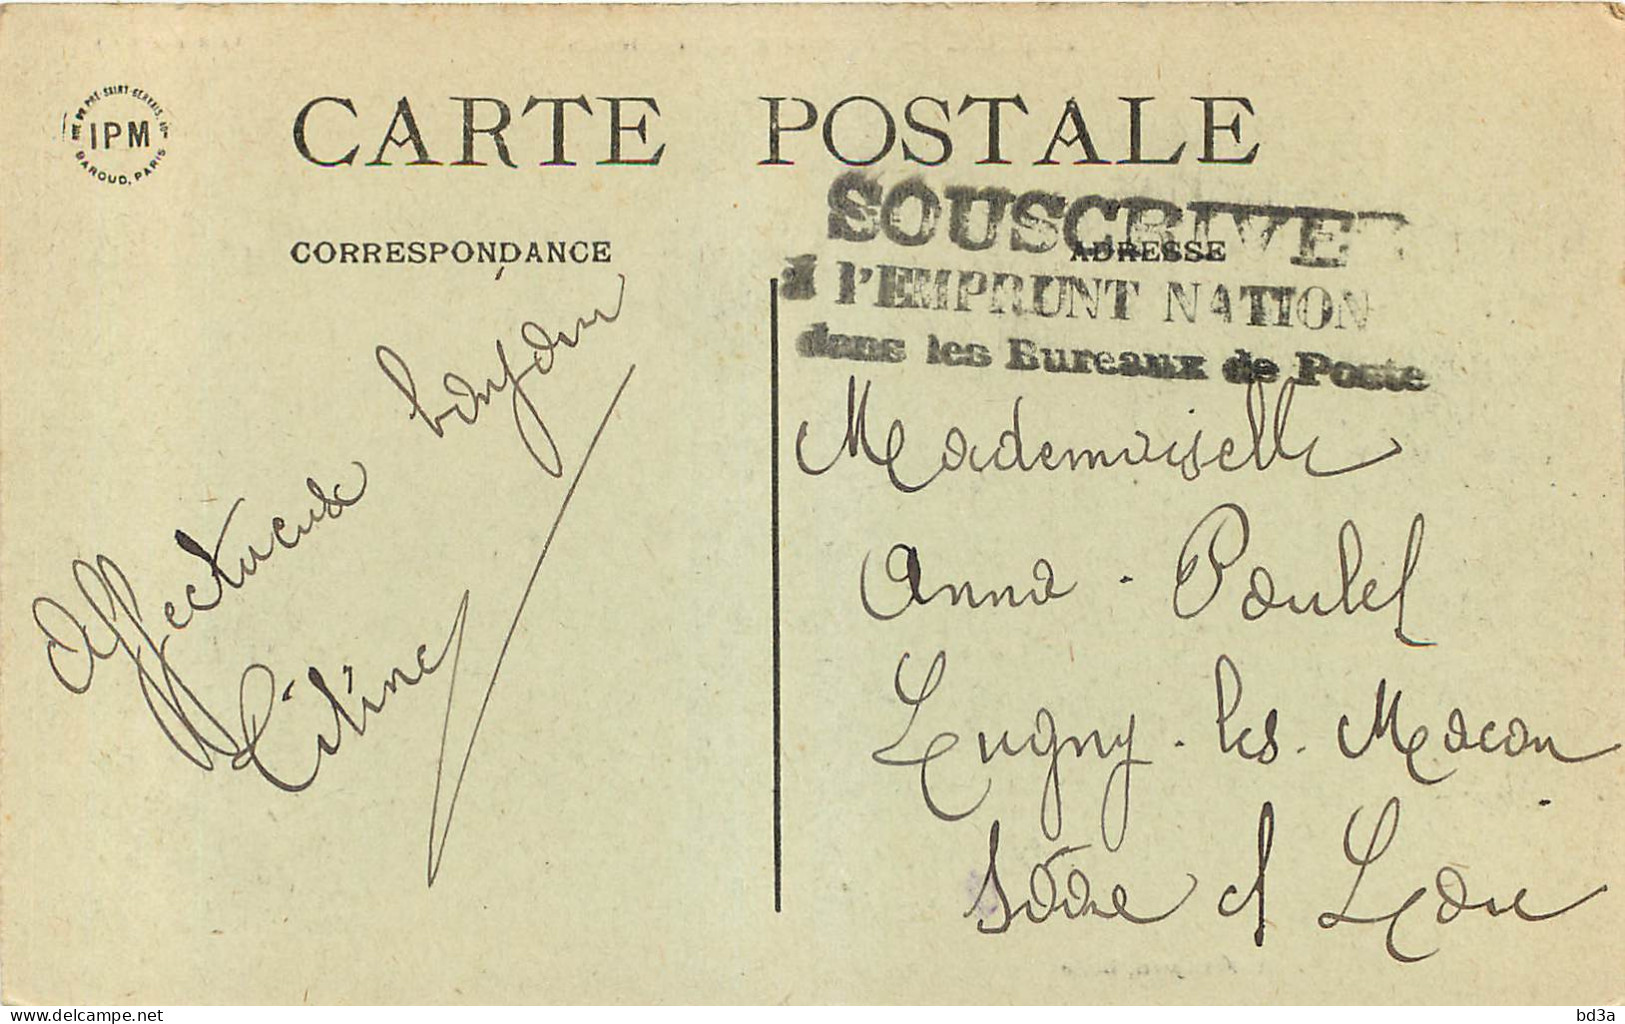 CARTE POSTALE
RUE DU PRÉ-SAINT-GERVAIS
IPM
BAROUD, PARIS
SOUSCRIVE
CORRESPONDANCE
ADRESSE
à l'EMPRUNT NATION
dans les Bureaux de Poste
Affectueux bonjour
Titine
Mademoiselle
Anna - Paulel
Lugny - les - Macon
Saône et Loire
www.delcampe.net
bd3a